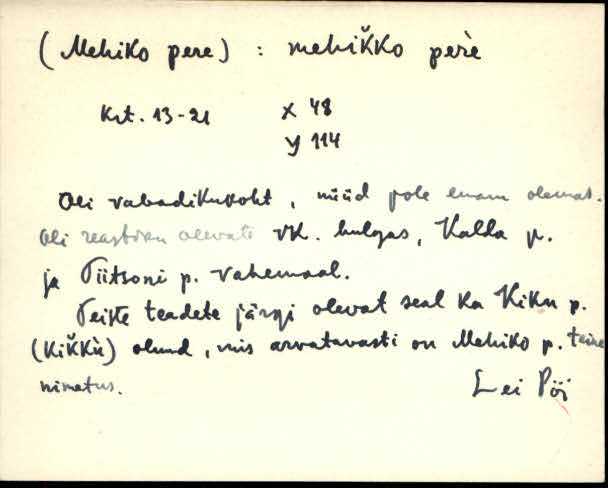 (Mehiko pere) : mehik̆ko perè
Krt. 13-21 x 48
y 114
Oli vabadikukoht, nüüd pole enam olemas.
Oli olevate vk. hulgas, Kalda p.
ja Tiitsoni p. vahemaal.
Teiste teadete järgi olevat seal ka Kiku p.
(kik̆kù) olnud, mis arvatavasti on Mehiko p. teine
nimetus.
Lei Põi